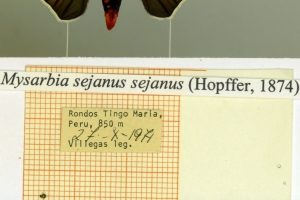 Mysarbia sejanus sejanus (Hopffer, 1874)
Rondos Tingo Maria,
Peru, 850 m
Villegas leg.